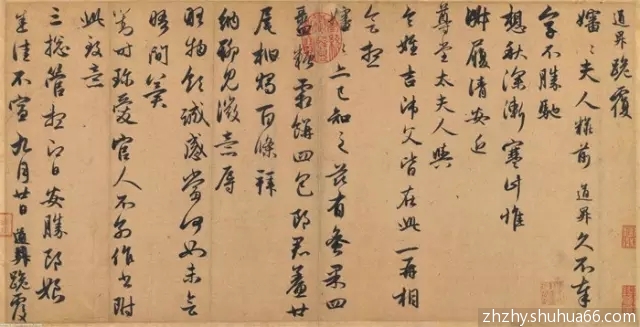 道昇跪覆
嬸〻夫人粧前道昇久不奉
字不勝馳
想秋深漸寒計惟
淑履清安近
尊堂太夫人與
令姪吉師父皆在此一再相
會想
嬸〻亦已知之茲有蜜果四
盝糖霜餅四包郎君鯗廿
尾柏燭百條拜
納聊見微意辱
略物領誠感當何如未會
晤間冀
對時珍愛官人不別作書附
此致意
三總管想即日安勝郎娘
悉佳不宣九月廿日道昇跪覆
zhzhy.shuhua66.com